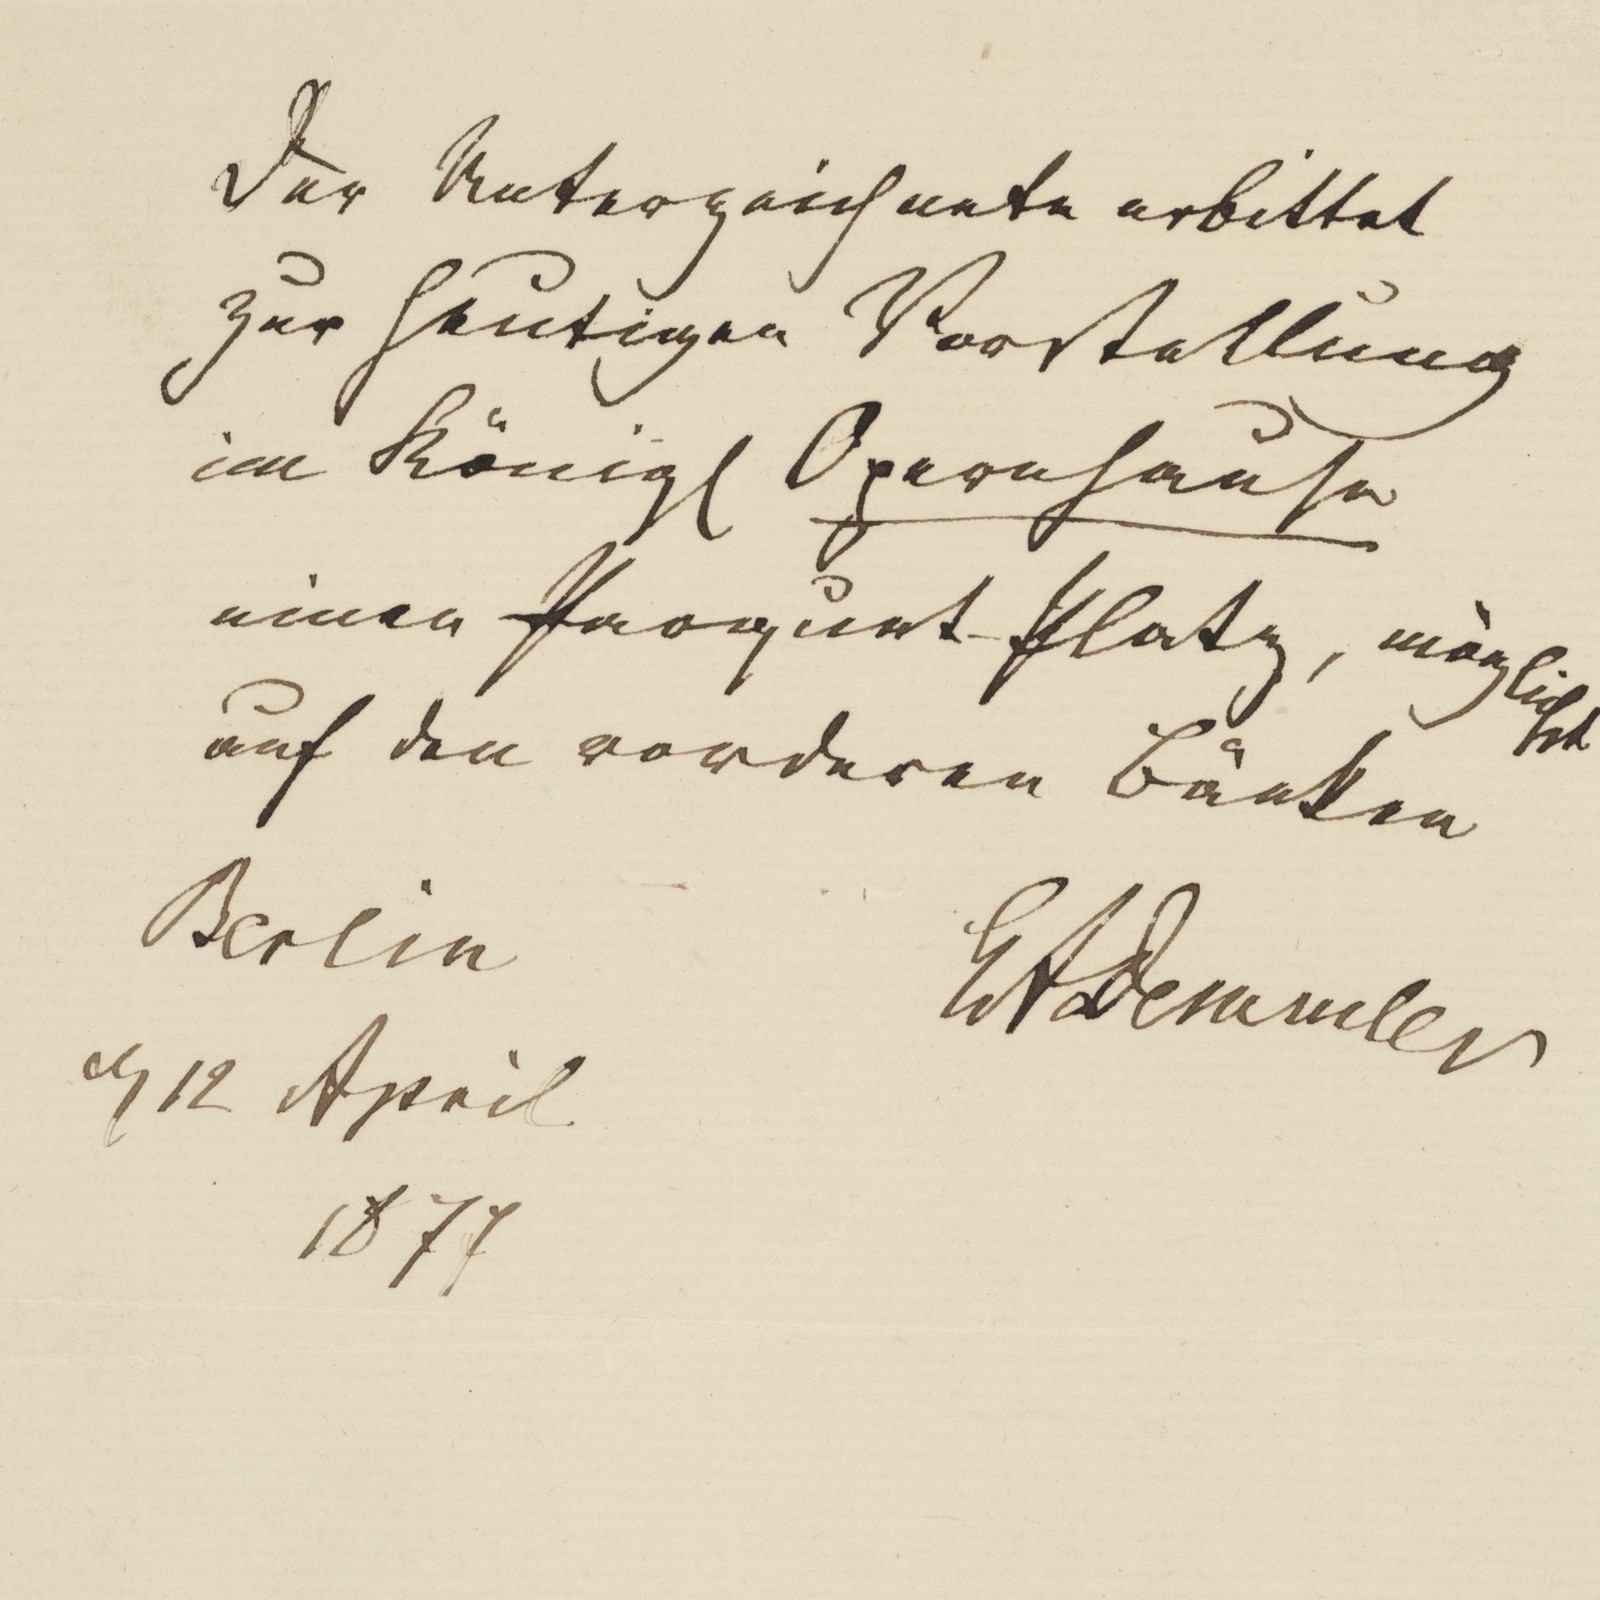 Der Unterzeichnete erbittet
zur heutigen Vorstellung
im Königl Opernhause
einen Parquet-Platz, möglichst
auf den vorderen Bänken
Berlin
GADemmler
d 12 April
1877